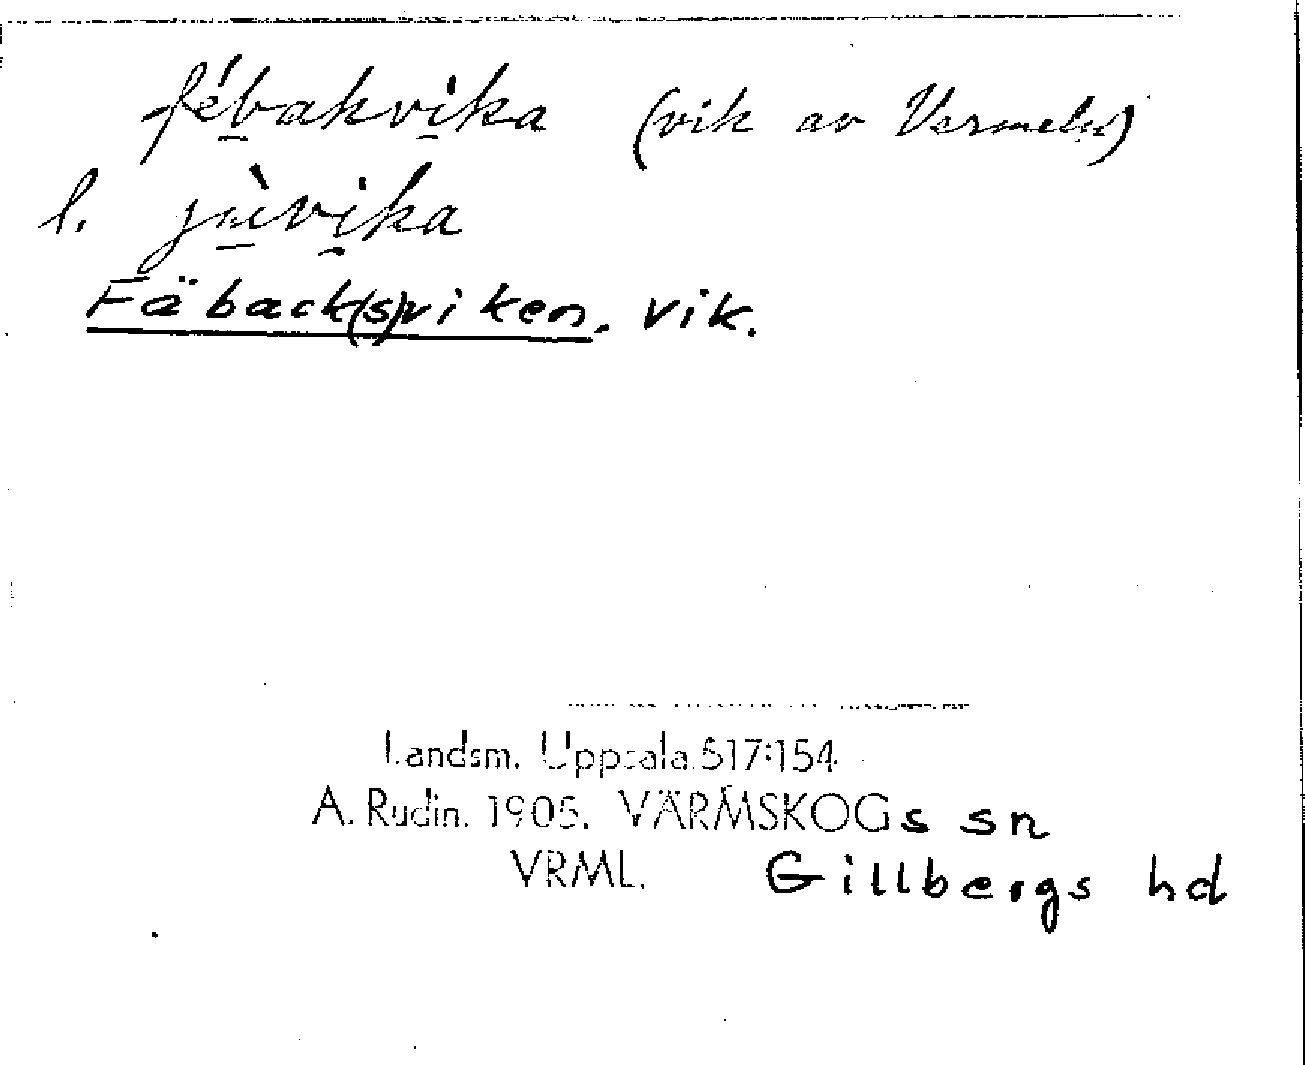 fébakvika (vik av Vermeln)
l. jnìvika
Fäback(s)viken, vik.
Landsm. Uppsala 517:154
A. Rudin. 1905. VÄRMSKOGs sn
VRML. Gillbergs hd